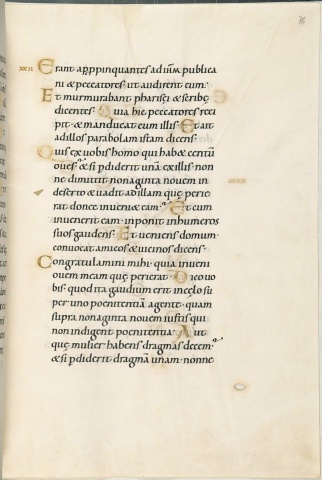 76
XXII
Erant appropinquantes ad ihm publica
ni & peccatores ut audirent eum.
Et murmurabant pharisęi & scribę
dicentes. Quia hic peccatores reci
pit & manducat cum illis. Et ait
ad illos parabolam istam dicens.
Quis ex vobis homo qui hab& centū
oves. & si pdiderit unā ex illis. non
ne dimittit nonaginta novem in
deserto & vadit ad illam quę perie
rat donec inveni& eam. Et cum
invenerit eam inponit in humeros
suos gaudens. Et veniens domum
convocat amicos & vicinos dicens.
Congratulamini mihi quia inveni
ovem meam quę perierat. Dico vo
bis quod ita gaudium erit in cęlo su
per uno poenitentiā agente quam
supra nonaginta novem iustis qui
non indigent poenitentia. Aut
quę mulier habens dragmas decem.
& si pdiderit dragmā unam. nonne